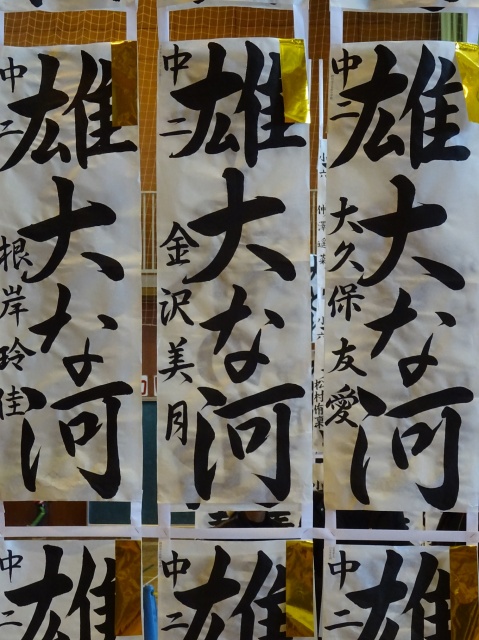 雄大な河
中二 大久保友愛
雄大な河
中二 金沢美月
雄大な河
中二 根岸玲佳
雄
中二
雄
中二
雄
中二